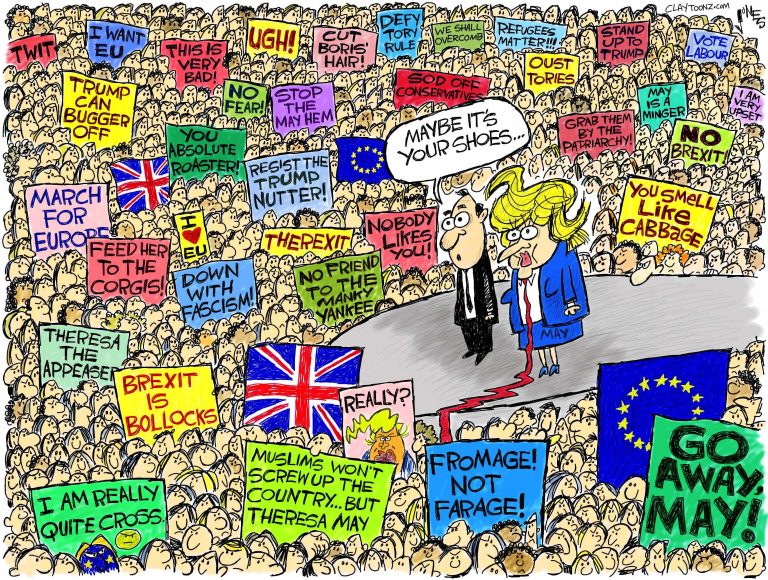 CLAYTOONZ.COM
JONES
TWIT
I WANT
EU
THIS IS
VERY
BAD!
UGH!
CUT
BORIS'
HAIR!
DEFY
TORY
RULE
WE SHALL
OVERCOMB
REFUGEES
MATTER!!!
STAND
UP TO
TRUMP
VOTE
LABOUR
TRUMP
CAN
BUGGER
OFF
NO
FEAR!
STOP
THE
MAYHEM
SOD OFF
CONSERVATIVES
OUST
TORIES
MAY
IS A
MINGER
I AM
VERY
UPSET
YOU
ABSOLUTE
ROASTER!
MAYBE IT'S
YOUR SHOES...
GRAB THEM
BY THE
PATRIARCHY!
NO
BREXIT!
RESIST THE
TRUMP
NUTTER!
MARCH
FOR
EUROPE
I ❤ EU
NOBODY
LIKES
YOU!
YOU SMELL
LIKE
CABBAGE
FEED HER
TO THE
CORGIS!
THEREXIT
DOWN
WITH
FASCISM!
NO FRIEND
TO THE
MANKY
YANKEE
MAY
THERESA
THE
APPEASER
BREXIT
IS
BOLLOCKS
REALLY?
MUSLIMS WON'T
SCREW UP THE
COUNTRY...BUT
THERESA MAY
FROMAGE!
NOT
FARAGE!
GO
AWAY,
MAY!
I AM REALLY
QUITE CROSS.